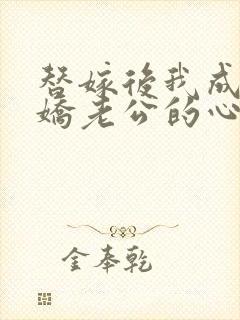 替嫁後我成
嬌老公的心
金奉乾